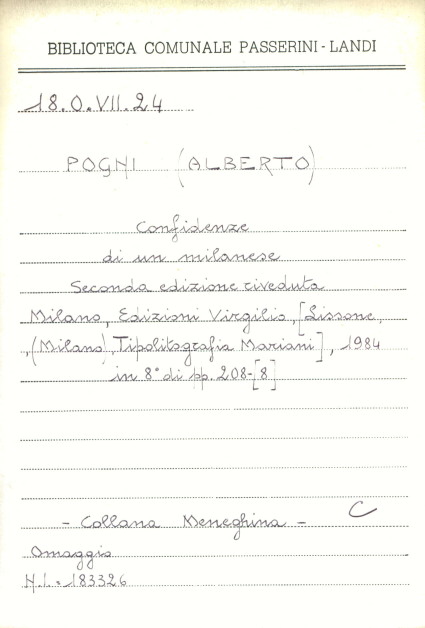 BIBLIOTECA COMUNALE PASSERINI-LANDI
18.O.VII.24
POGNI (ALBERTO)
Confidenze
di un milanese
Seconda edizione riveduta
Milano, Edizioni Virgilio, [Lissone,
(Milano), Tipolitografia Mariani], 1984
in 8° di pp. 208-[8]
C
- Collana Meneghina -
Omaggio
N.I. 183326